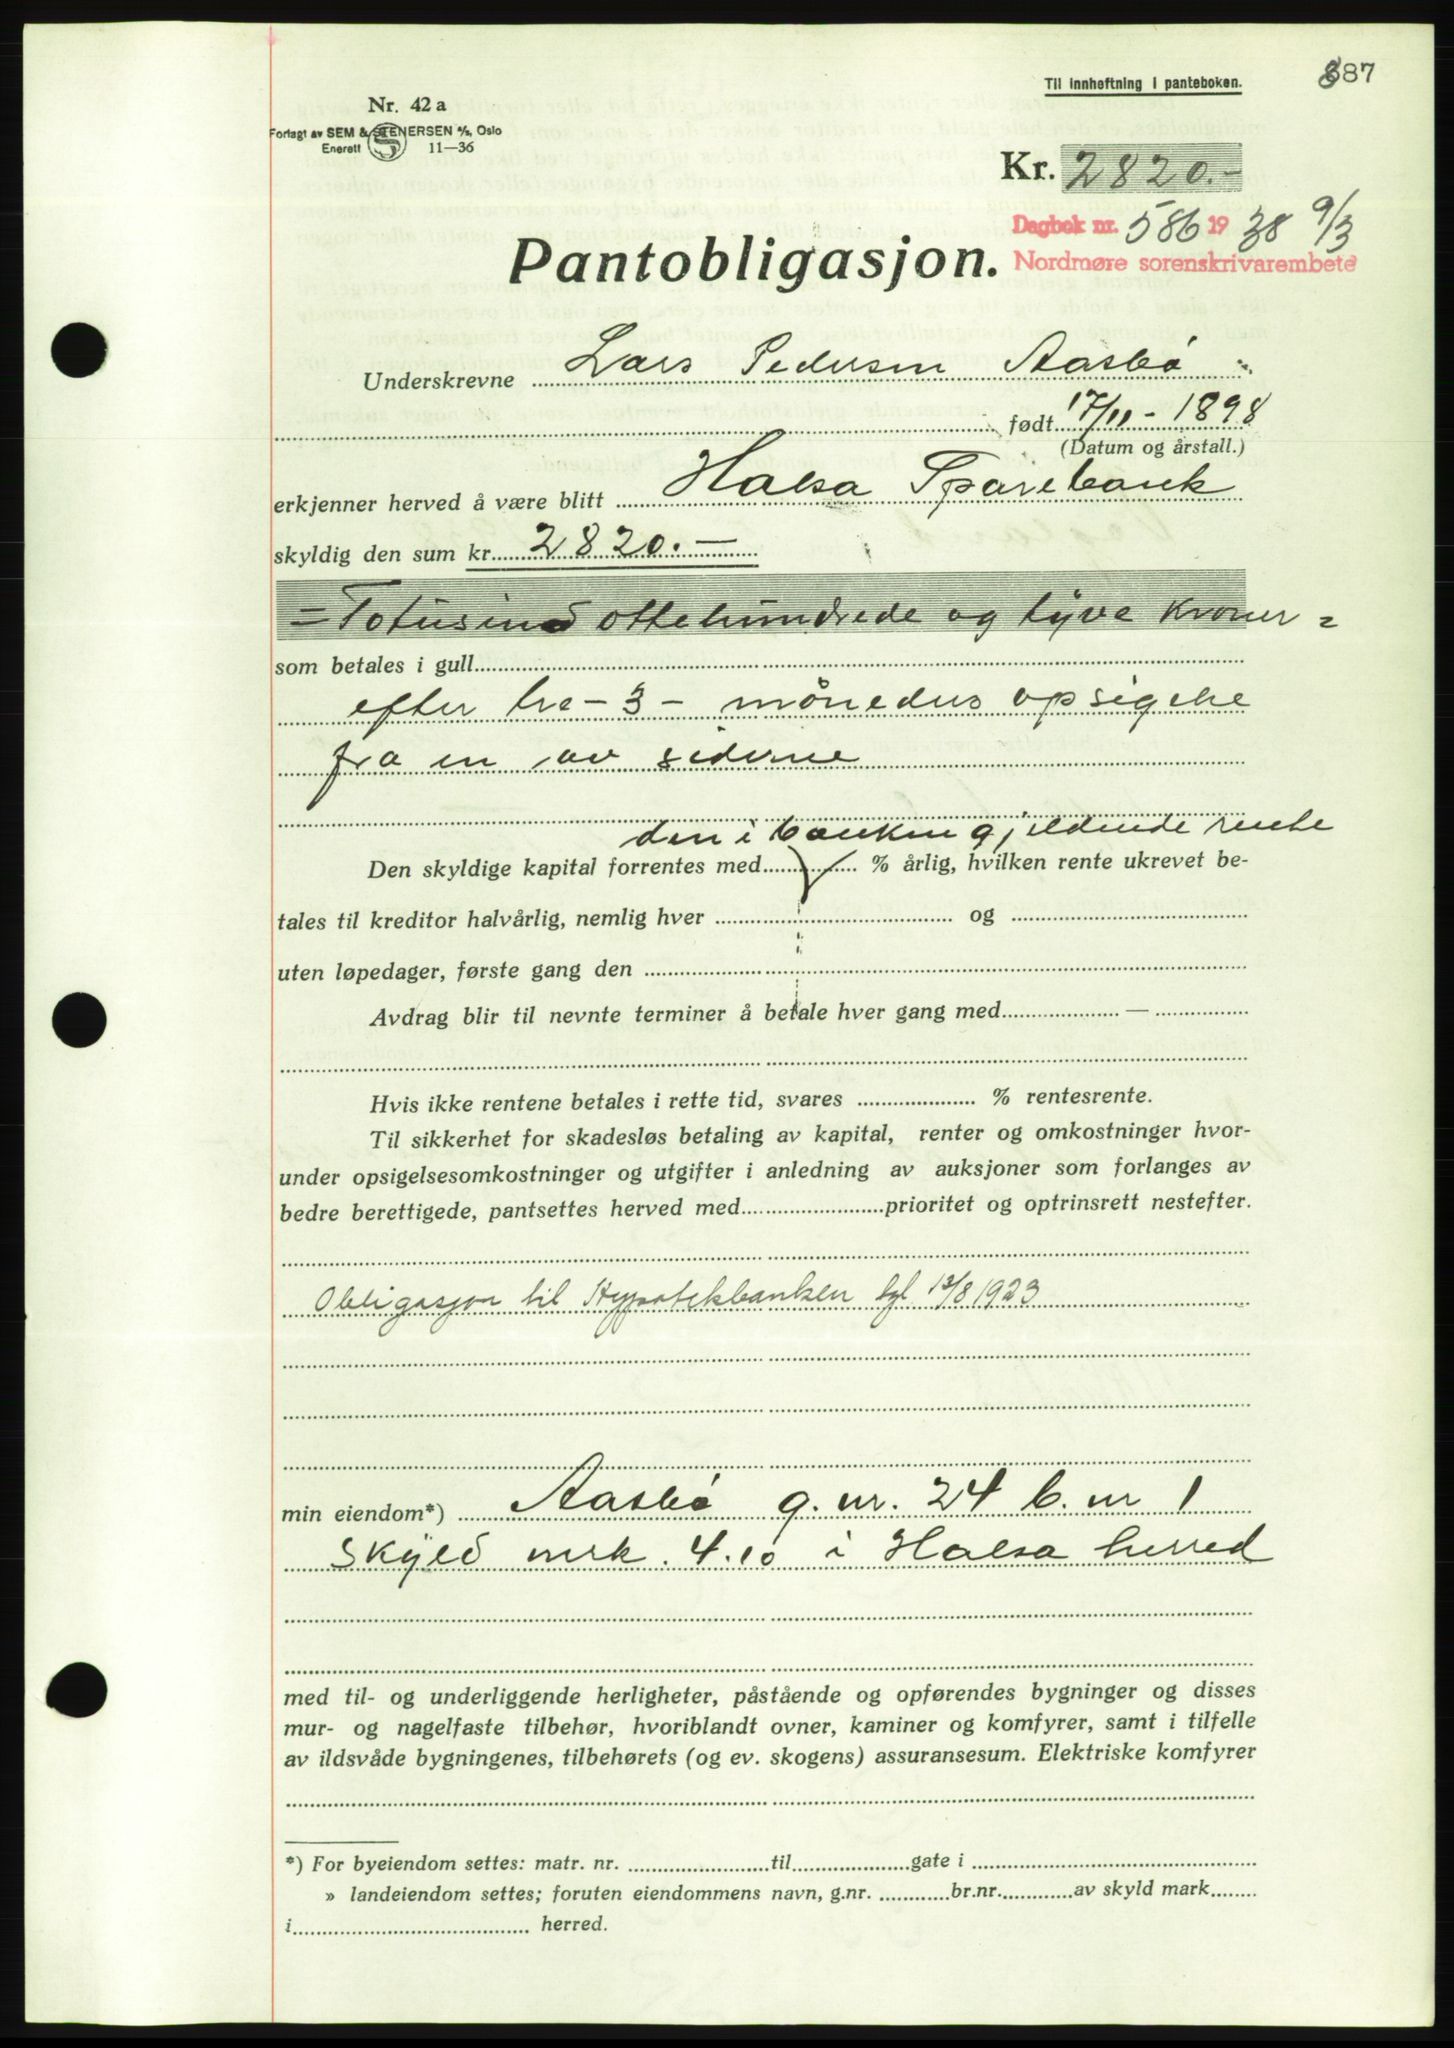 387
Til innheftning i panteboken.
Nr. 42 a
Forlagt av SEM & STENERSEN A/S, Oslo
Enerett 11—36
Kr. 2820.-
Dagbok nr. 586 1938 9/3
Nordmøre sorenskrivarembete
Pantobligasjon.
Underskrevne Lars Pedersen Aasbø
født 17/11 - 1898
(Datum og årstall.)
erkjenner herved å være blitt Halsa Sparebank
skyldig den sum kr. 2820.—
= Totusind ottehundrede og tyve kroner =
som betales i gull
efter tre - 3 - måneders opsigelse
fra en av siderne
den i banken gjeldende rente
Den skyldige kapital forrentes med % årlig, hvilken rente ukrevet be-
tales til kreditor halvårlig, nemlig hver og
uten løpedager, første gang den
Avdrag blir til nevnte terminer å betale hver gang med —
Hvis ikke rentene betales i rette tid, svares % rentesrente.
Til sikkerhet for skadesløs betaling av kapital, renter og omkostninger hvor-
under opsigelsesomkostninger og utgifter i anledning av auksjoner som forlanges av
bedre berettigede, pantsettes herved med prioritet og optrinsrett nestefter.
Obligasjon til Hypotekbanken tgl. 13/8 1923
min eiendom*) Aasbø g. nr. 24 b. nr 1
Skyld mrk. 4.10 i Halsa herred
med til- og underliggende herligheter, påstående og opførendes bygninger og disses
mur- og nagelfaste tilbehør, hvoriblandt ovner, kaminer og komfyrer, samt i tilfelle
av ildsvåde bygningenes, tilbehørets (og ev. skogens) assuransesum. Elektriske komfyrer
*) For byeiendom settes: matr. nr. til gate i
» landeiendom settes; foruten eiendommens navn, g.nr. br.nr. av skyld mark
i herred.